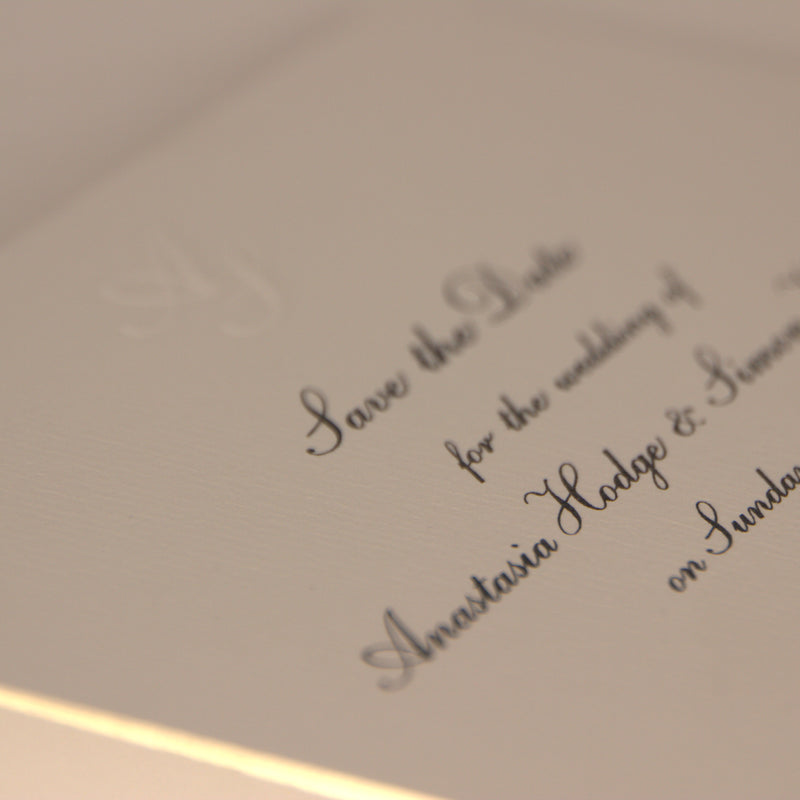 Save the Date
for the wedding of
Anastasia Hodge & Simon
on Sunday